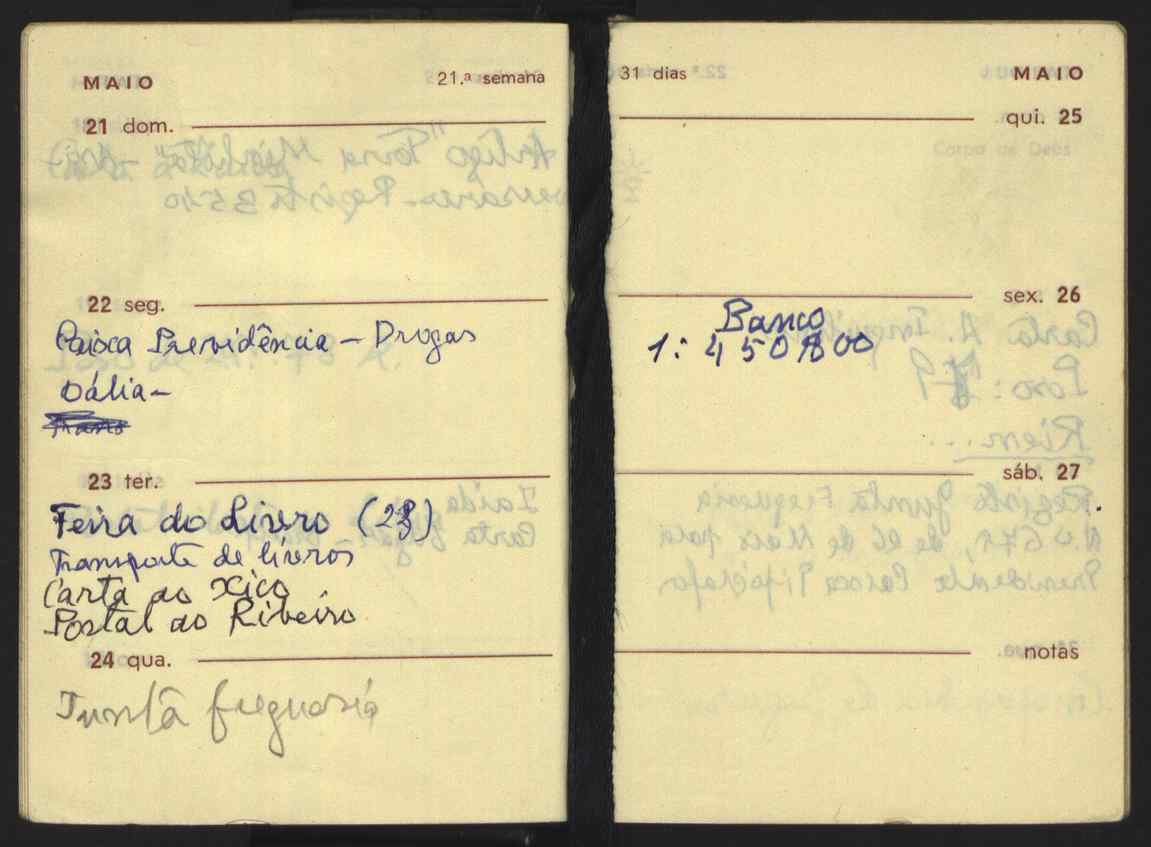 MAIO 21.ª semana
21 dom.
22 seg.
Caixa Previdência - Drogas
Dália -
23 ter.
Feira do Livro (23)
Transporte de livros
Carta ao Xico
Postal ao Ribeiro
24 qua.
Junta freguesia
31 dias MAIO
qui. 25
sex. 26
Banco
1: 4 50
sáb. 27
notas